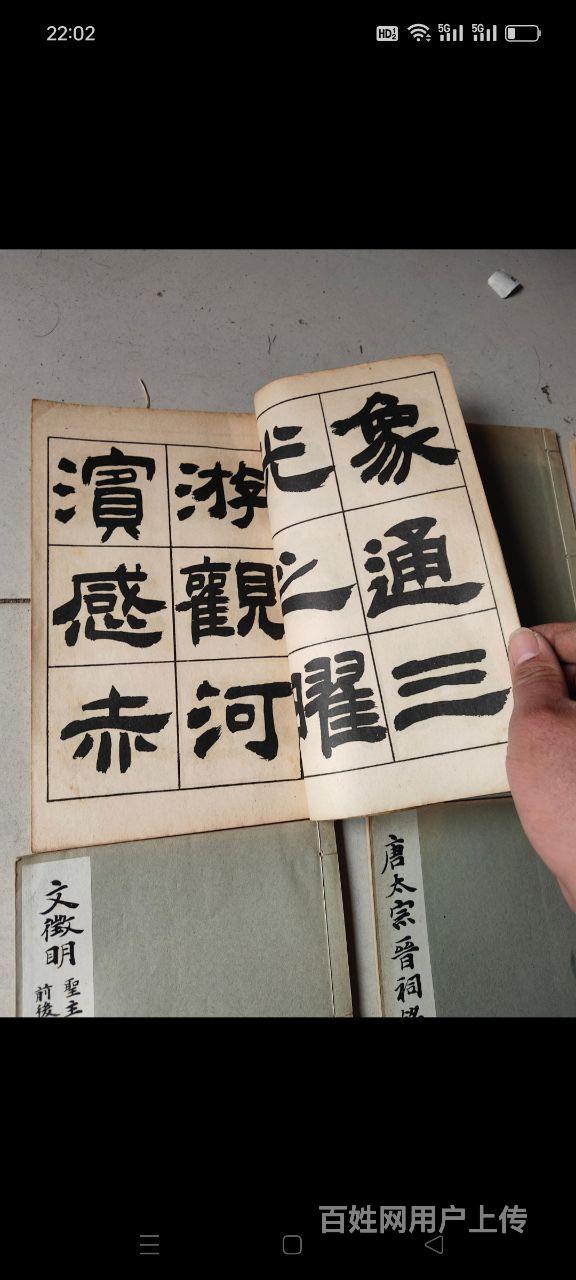 22:02
HD 1 2
5G
5G
象通三
光之曜
游觀河
濱感赤
文徵明
聖主
前後
唐太宗晉祠銘
百姓网用户上传